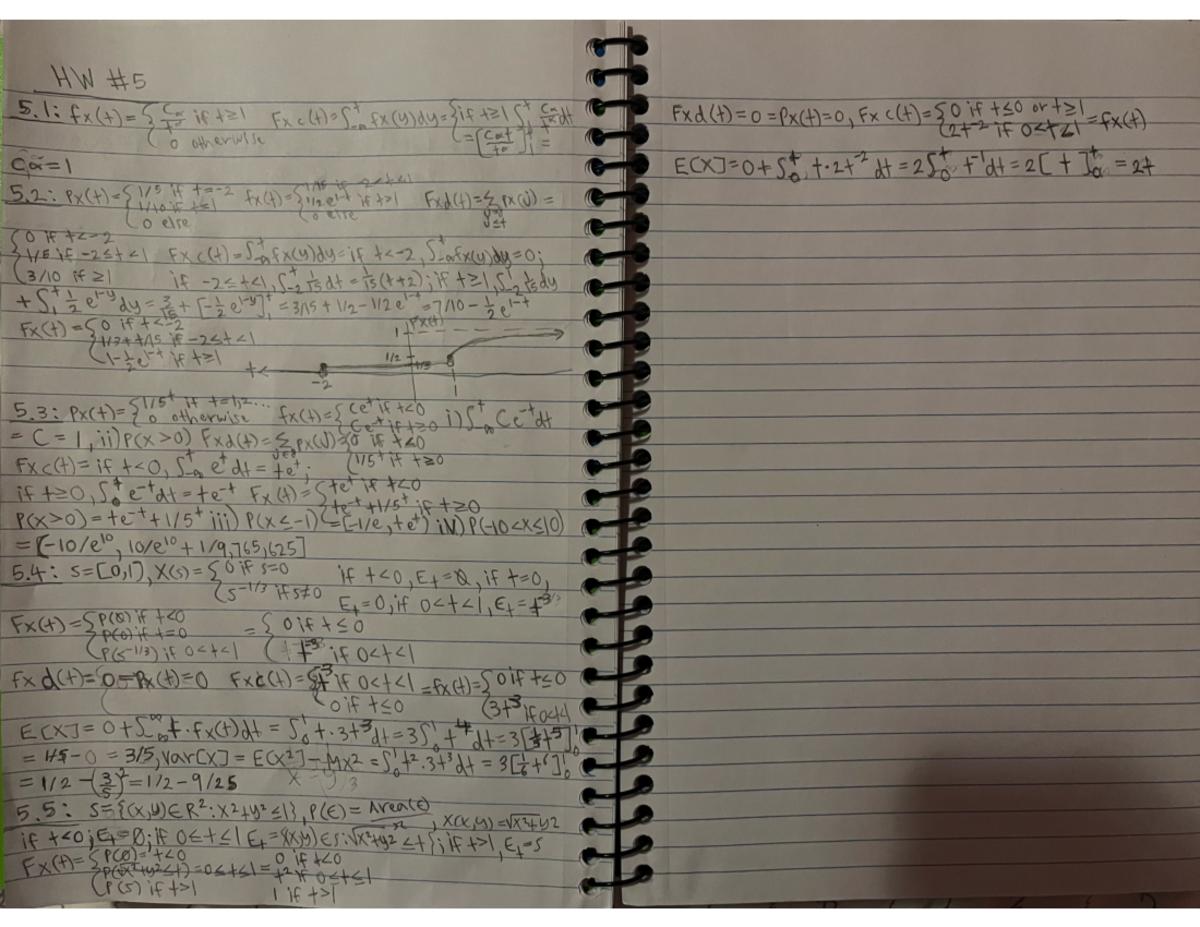 HW #5
5.1: fx(t) = { Cα/tα if t≥1 Fxc(t) = ∫-∞^t fx(y)dy = { if t≥1 ∫1^t Cα/tα dt
0 otherwise = [Cαt/tα]1^t =
Cα = 1
5.2: Px(t) = { 1/5 if t=-2 fx(t) = { 1/15 if -2<t<1 Fxd(t) = Σ px(y) =
1/10 if t=1 1/2 e^1-t if t>1 y≤t
0 else 0 else
{ 0 if t<-2
1/5 if -2≤t<1 Fxc(t) = ∫-∞^t fx(y)dy = if t<-2, ∫-∞^t fx(y)dy = 0;
3/10 if ≥1 if -2≤t<1, ∫-2^t 1/15 dt = 1/15(t+2); if t≥1, ∫-2^1 1/15 dy
+ ∫1^t 1/2 e^1-y dy = 3/15 + [-1/2 e^1-y]1^t = 3/15 + 1/2 - 1/2 e^1-t = 7/10 - 1/2 e^1-t
Fx(t) = { 0 if t<-2
1/3 + t/15 if -2≤t<1
1 - 1/2 e^1-t if t≥1
Fx(t)
1
1/2
1/3
t
-2 1
5.3: Px(t) = { 1/5^t if t=1,2... fx(t) = { Ce^t if t<0 i) ∫-∞^t Ce^-t dt
0 otherwise Ce^-t if t≥0
= C = 1, ii) P(X>0) Fxd(t) = Σ px(y) = { 0 if t<0
Fxc(t) = if t<0, ∫-∞^t e^t dt = te^t; 1/5^t if t≥0
if t≥0, ∫0^t e^-t dt = te^-t Fx(t) = { te^t if t<0
te^-t + 1/5^t if t≥0
P(X>0) = te^-t + 1/5^t iii) P(X≤-1) = [-1/e, te^t) iv) P(-10<X≤10)
= [-10/e^10, 10/e^10 + 1/9,765,625]
5.4: S=[0,1], X(s) = { 0 if s=0 if t<0, Et=∅, if t=0,
s^-1/3 if s≠0 Et=0, if 0<t<1, Et = t^3
Fx(t) = { P(∅) if t<0 = { 0 if t≤0
P(0) if t=0
P(s^-1/3) if 0<t<1 t^-3 if 0<t<1
Fxd(t) = 0 = Px(t) = 0 Fxc(t) = { t^3 if 0<t<1 = fx(t) = { 0 if t≤0
0 if t≤0 3t^3 if 0<t<1
E[X] = 0 + ∫-∞^∞ t·fx(t)dt = ∫0^1 t·3t^3 dt = 3∫0^1 t^4 dt = 3[1/5 t^5]0^1
= 1/5 - 0 = 3/5, Var[X] = E[X²] - μx² = ∫0^1 t²·3t³dt = 3[1/6 t^6]0^1
= 1/2 - (3/5)² = 1/2 - 9/25
5.5: S={(x,y)∈R²: x²+y²≤1}, P(E) = Area(E)/π, X(x,y) = √x²+y²
if t<0; Et=∅; if 0≤t≤1 Et={(x,y)∈S: √x²+y² ≤t}; if t>1, Et=S
Fx(t) = { P(∅) = t<0 0 if t<0
P(√x²+y²≤t) = 0≤t≤1 = t² if 0≤t≤1
P(S) if t>1 1 if t>1
Fxd(t) = 0 = Px(t) = 0, Fxc(t) = { 0 if t≤0 or t≥1 = fx(t)
2t^-2 if 0<t≤1
E[X] = 0 + ∫0^t t·2t^-2 dt = 2∫0^t t^-1 dt = 2[t]0^t = 2t